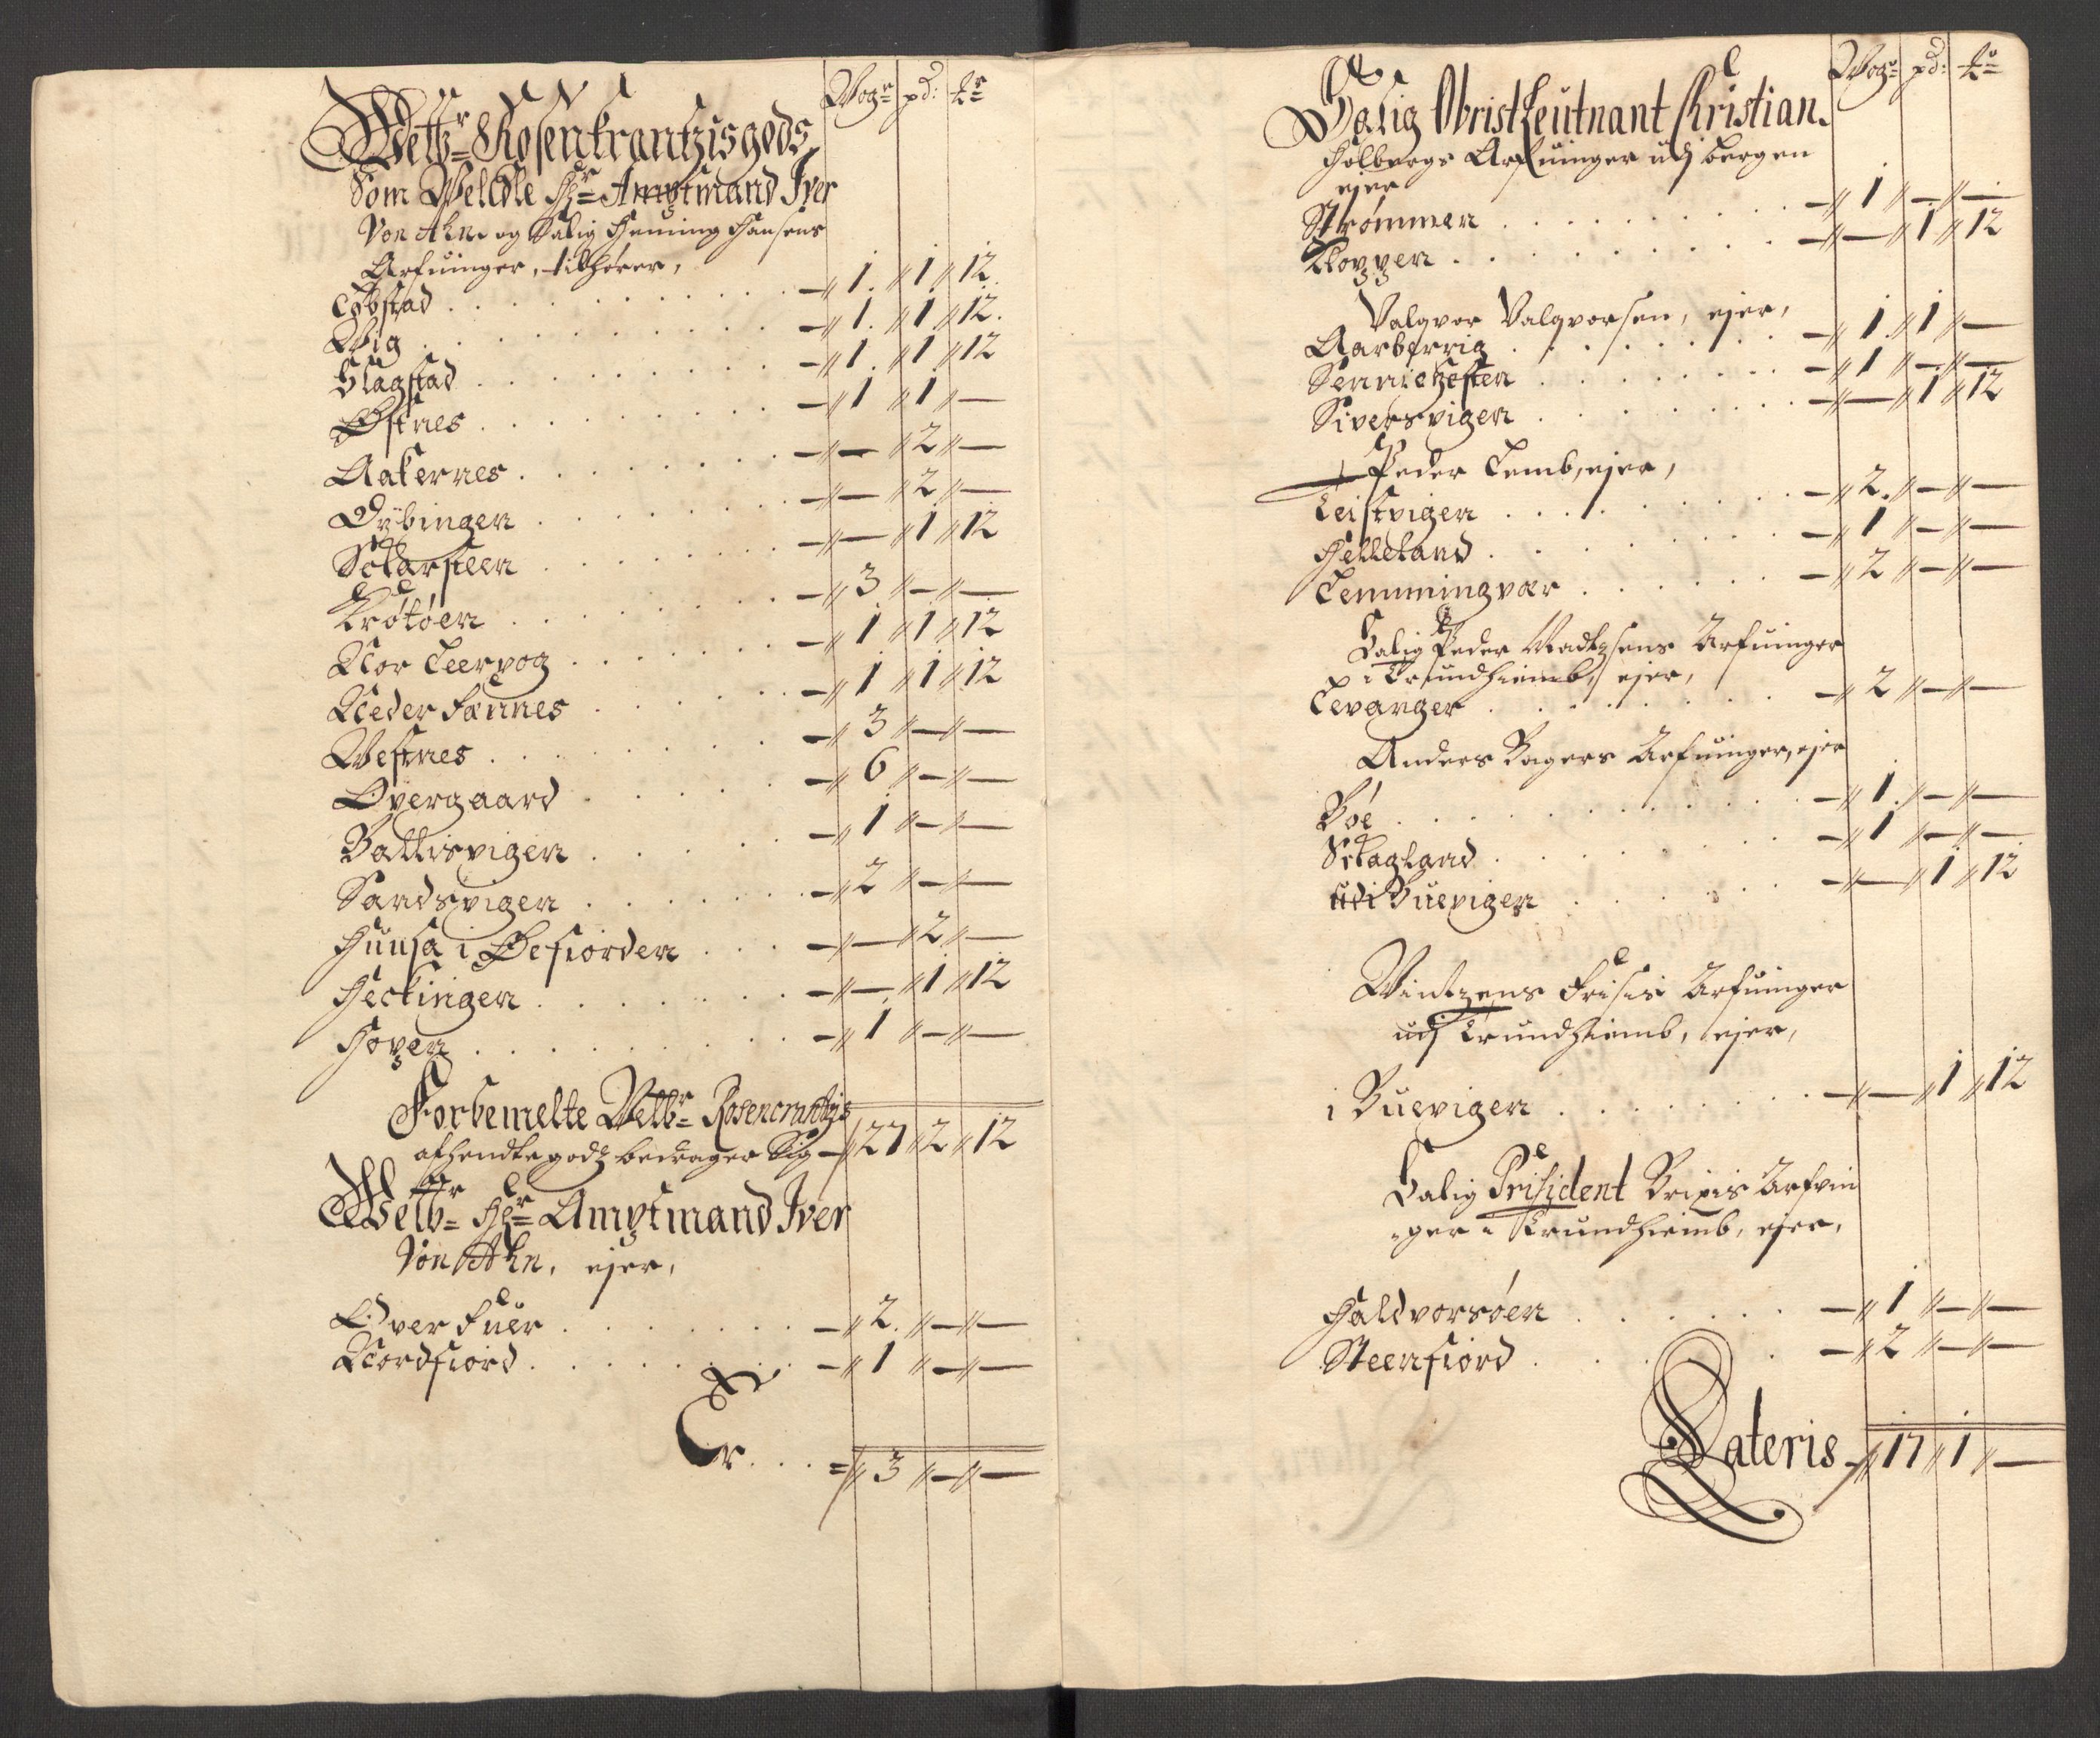 Wog.r pd: t.r
Welb.r Rosenkrantzis gods
Som Weledle Hr. Amptmand Iver
Von Ahn, og Salig Henning Hansens
Arfuinger, tilhører,
Løbstad . . . – 1. 1. 12.
Wig . . . – 1. 1. 12.
Slagstad . . . – 1. 1. 12
Østnes . . . – 1 1 –
Aakernes . . . – – 2 –
Dybingen . . . – – 2 –
Skarsteen . . . – – 1 12
Krøtøen . . . – 3 – –
Nor Leervog . . . – 1 1 12
Neder Fannes . . . – 1 1 12
Westnes . . . – 3 – –
Øvergaard . . . – 6 – –
Ballisvigen . . . – 1 – –
Sandsvigen . . . – 2 – –
Huusa i Øefiorden . . . – – 2 –
Heckingen . . . – – 1 12
Hoven . . . – 1 – –
Forbemelte Welb.r Rosencrantzis
afhendte godz bedrager Sig – 27 2 12
Welb.r Hr. Amptmand Iver
Von Ahn, ejer,
Over Fuer . . . – 2. – –
Nordfiord . . . – 1 – –
Er . . . 3 – –
Wog.r pd: t.r
Salig Obrist Leutnant Christian
Holbergs Arfuinger udj bergen
ejer
Strømmen . . . – 1 – –
Kloppen . . . – – 1 12
Valqvor Valqvorsen, ejer,
Aarberrig . . . – 1. 1 –
Senniehesten . . . – 1 – –
Siversvigen . . . – – 1 12
Peder Lemb, ejer,
Leistvigen . . . – 2. – –
Helleland . . . – 1 – –
Lemmingvær . . . – 2 – –
Salig Peder Madtzsens Arfuinger
i Trundhiemb, ejer,
Levanger . . . – 2 – –
Anders Bagers Arfuinger, ejer
Bøe . . . – 1. – –
Skagland . . . – 1 – –
udi Buevigen . . . – – 1 12
Vintzens Frisis Arfuinger
udj Trundhiemb, ejer,
i Buevigen . . . – – 1 12
Salig Prisident Bripis Arfvin
ger i Trundhiemb, ejer,
Haldvorsøen . . . – 1 – –
Steenfiord . . . – 2 – –
Lateris – 17 1 –